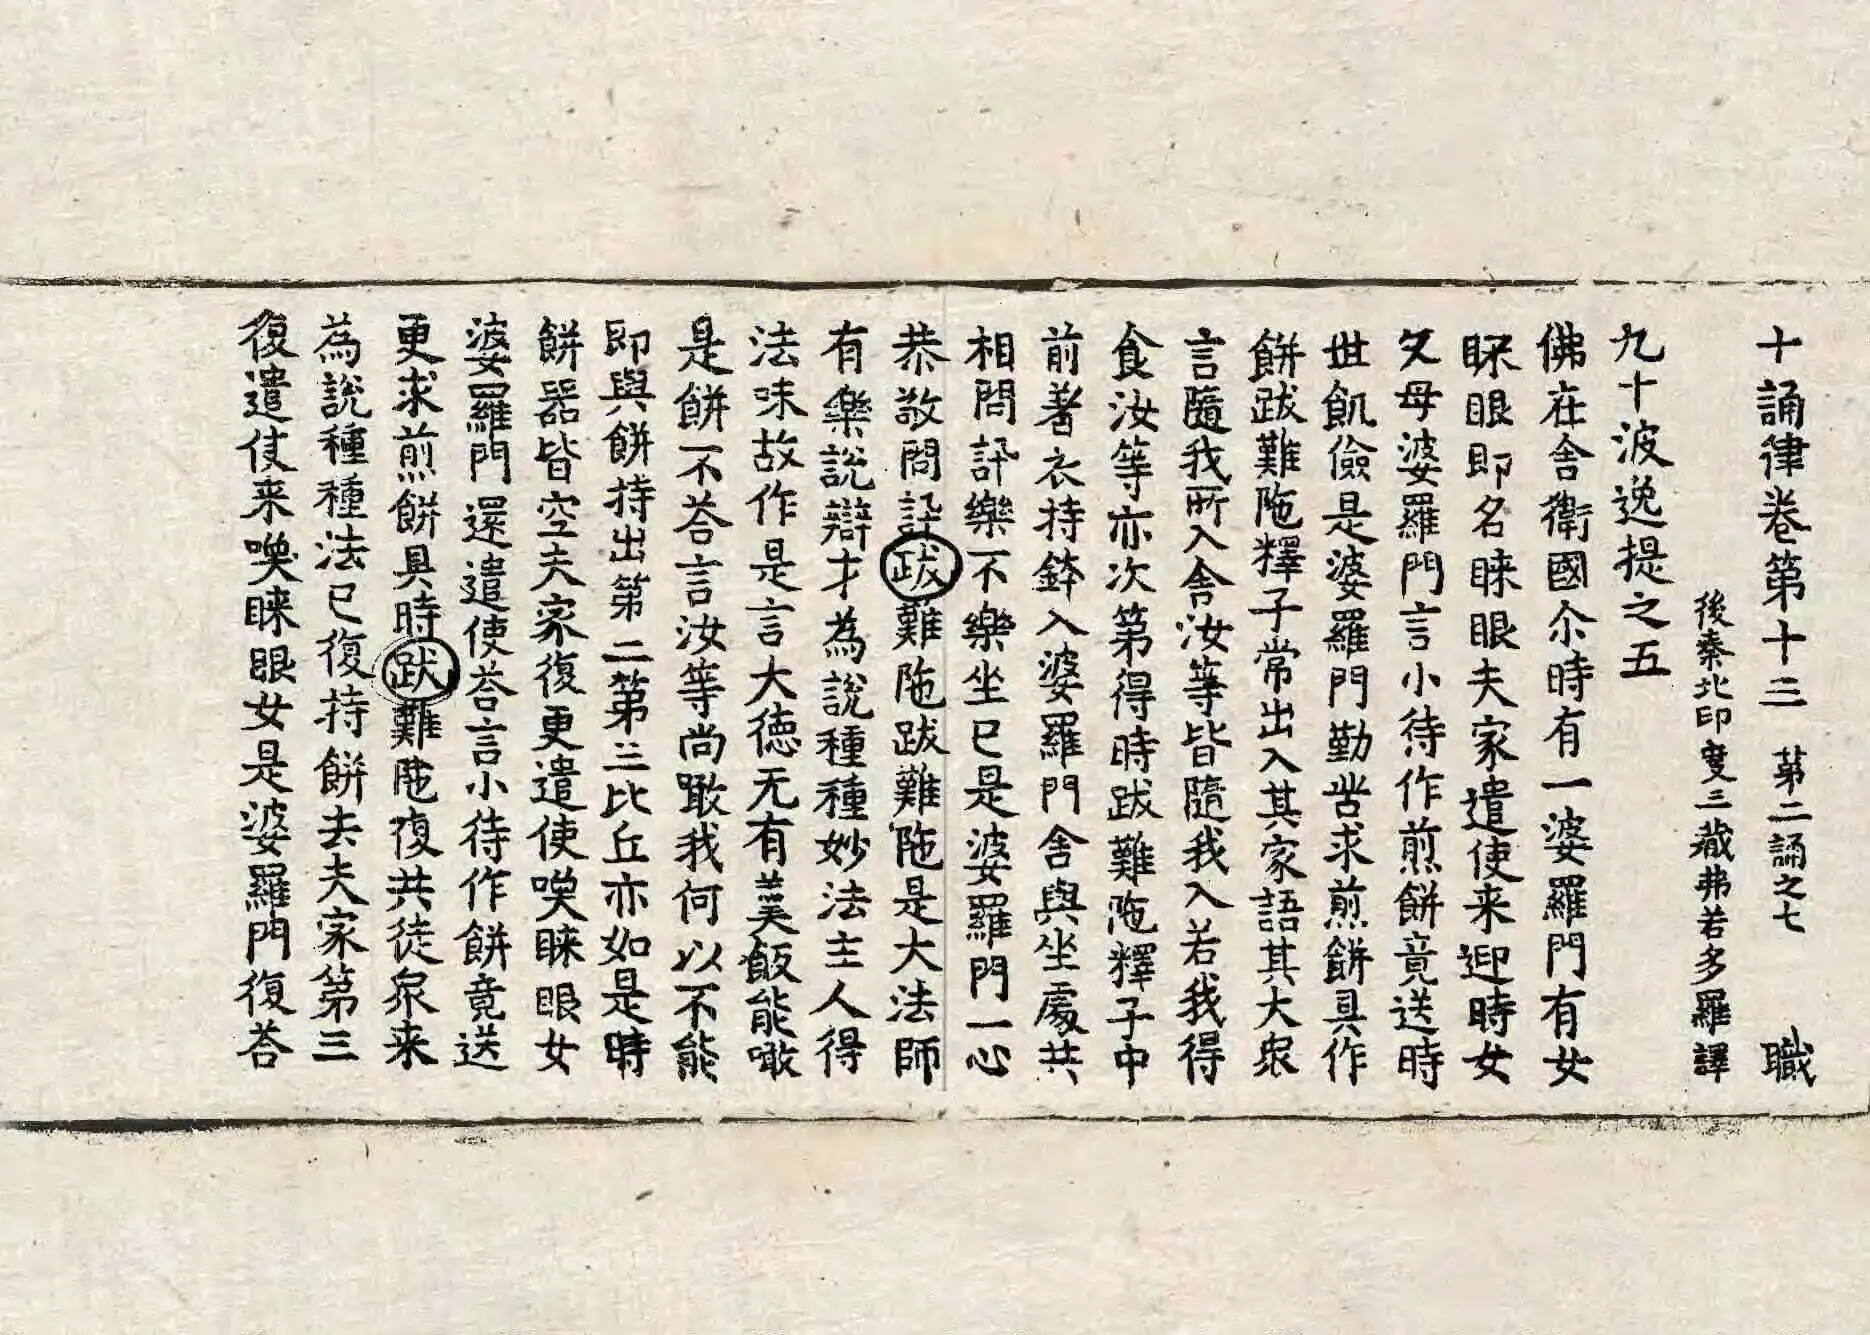 十誦律卷第十三 第二誦之七 職
後秦北印度三藏弗若多羅譯
九十波逸提之五
佛在舍衛國尒時有一婆羅門有女
睞眼即名睞眼夫家遣使来迎時女
父母婆羅門言小待作煎餅竟送時
世飢儉是婆羅門勤苦求煎餅具作
餅跋難陁釋子常出入其家語其大衆
言隨我所入舍汝等皆隨我入若我得
食汝等亦次第得時跋難陁釋子中
前著衣持鉢入婆羅門舍與坐處共
相問訊樂不樂坐已是婆羅門一心
恭敬問訊跋難陁跋難陁是大法師
有樂說辯才為說種種妙法主人得
法味故作是言大徳无有美飯能噉
是餅不荅言汝等尚噉我何以不能
即與餅持出第二第三比丘亦如是時
餅器皆空夫家復更遣使喚睞眼女
婆羅門還遣使荅言小待作餅竟送
更求煎餅具時跋難陁復共徒衆来
為說種種法已復持餅去夫家第三
復遣使来喚睞眼女是婆羅門復荅